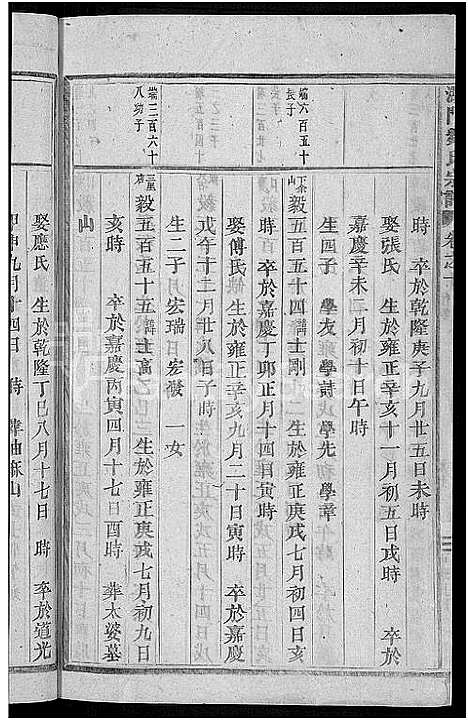 時　卒於乾隆庚子九月廿五日未時
娶張氏　生於雍正辛亥十一月初五日戌時　卒於
嘉慶辛未二月初十日午時
生四子　學友　學詩　學先　學章
端六百五十
長子
下宗山
毅五百五十四　諱士剛　生於雍正庚戌七月初四日亥
時　卒於嘉慶丁卯正月十四日寅時
娶傅氏　生於雍正辛亥九月二十日寅時　卒於嘉慶
戊午十二月廿八日子時
生二子　宏瑞　宏發　一女
端三百六十
八幼子
毅五百五十五　諱士高　生於雍正庚戌七月初九日
亥時　卒於嘉慶丙寅四月十七日酉時　葬太婆墓
山
娶應氏　生於乾隆丁巳八月十七日　時　卒於道光
甲申九月十四日　時　葬由麻山